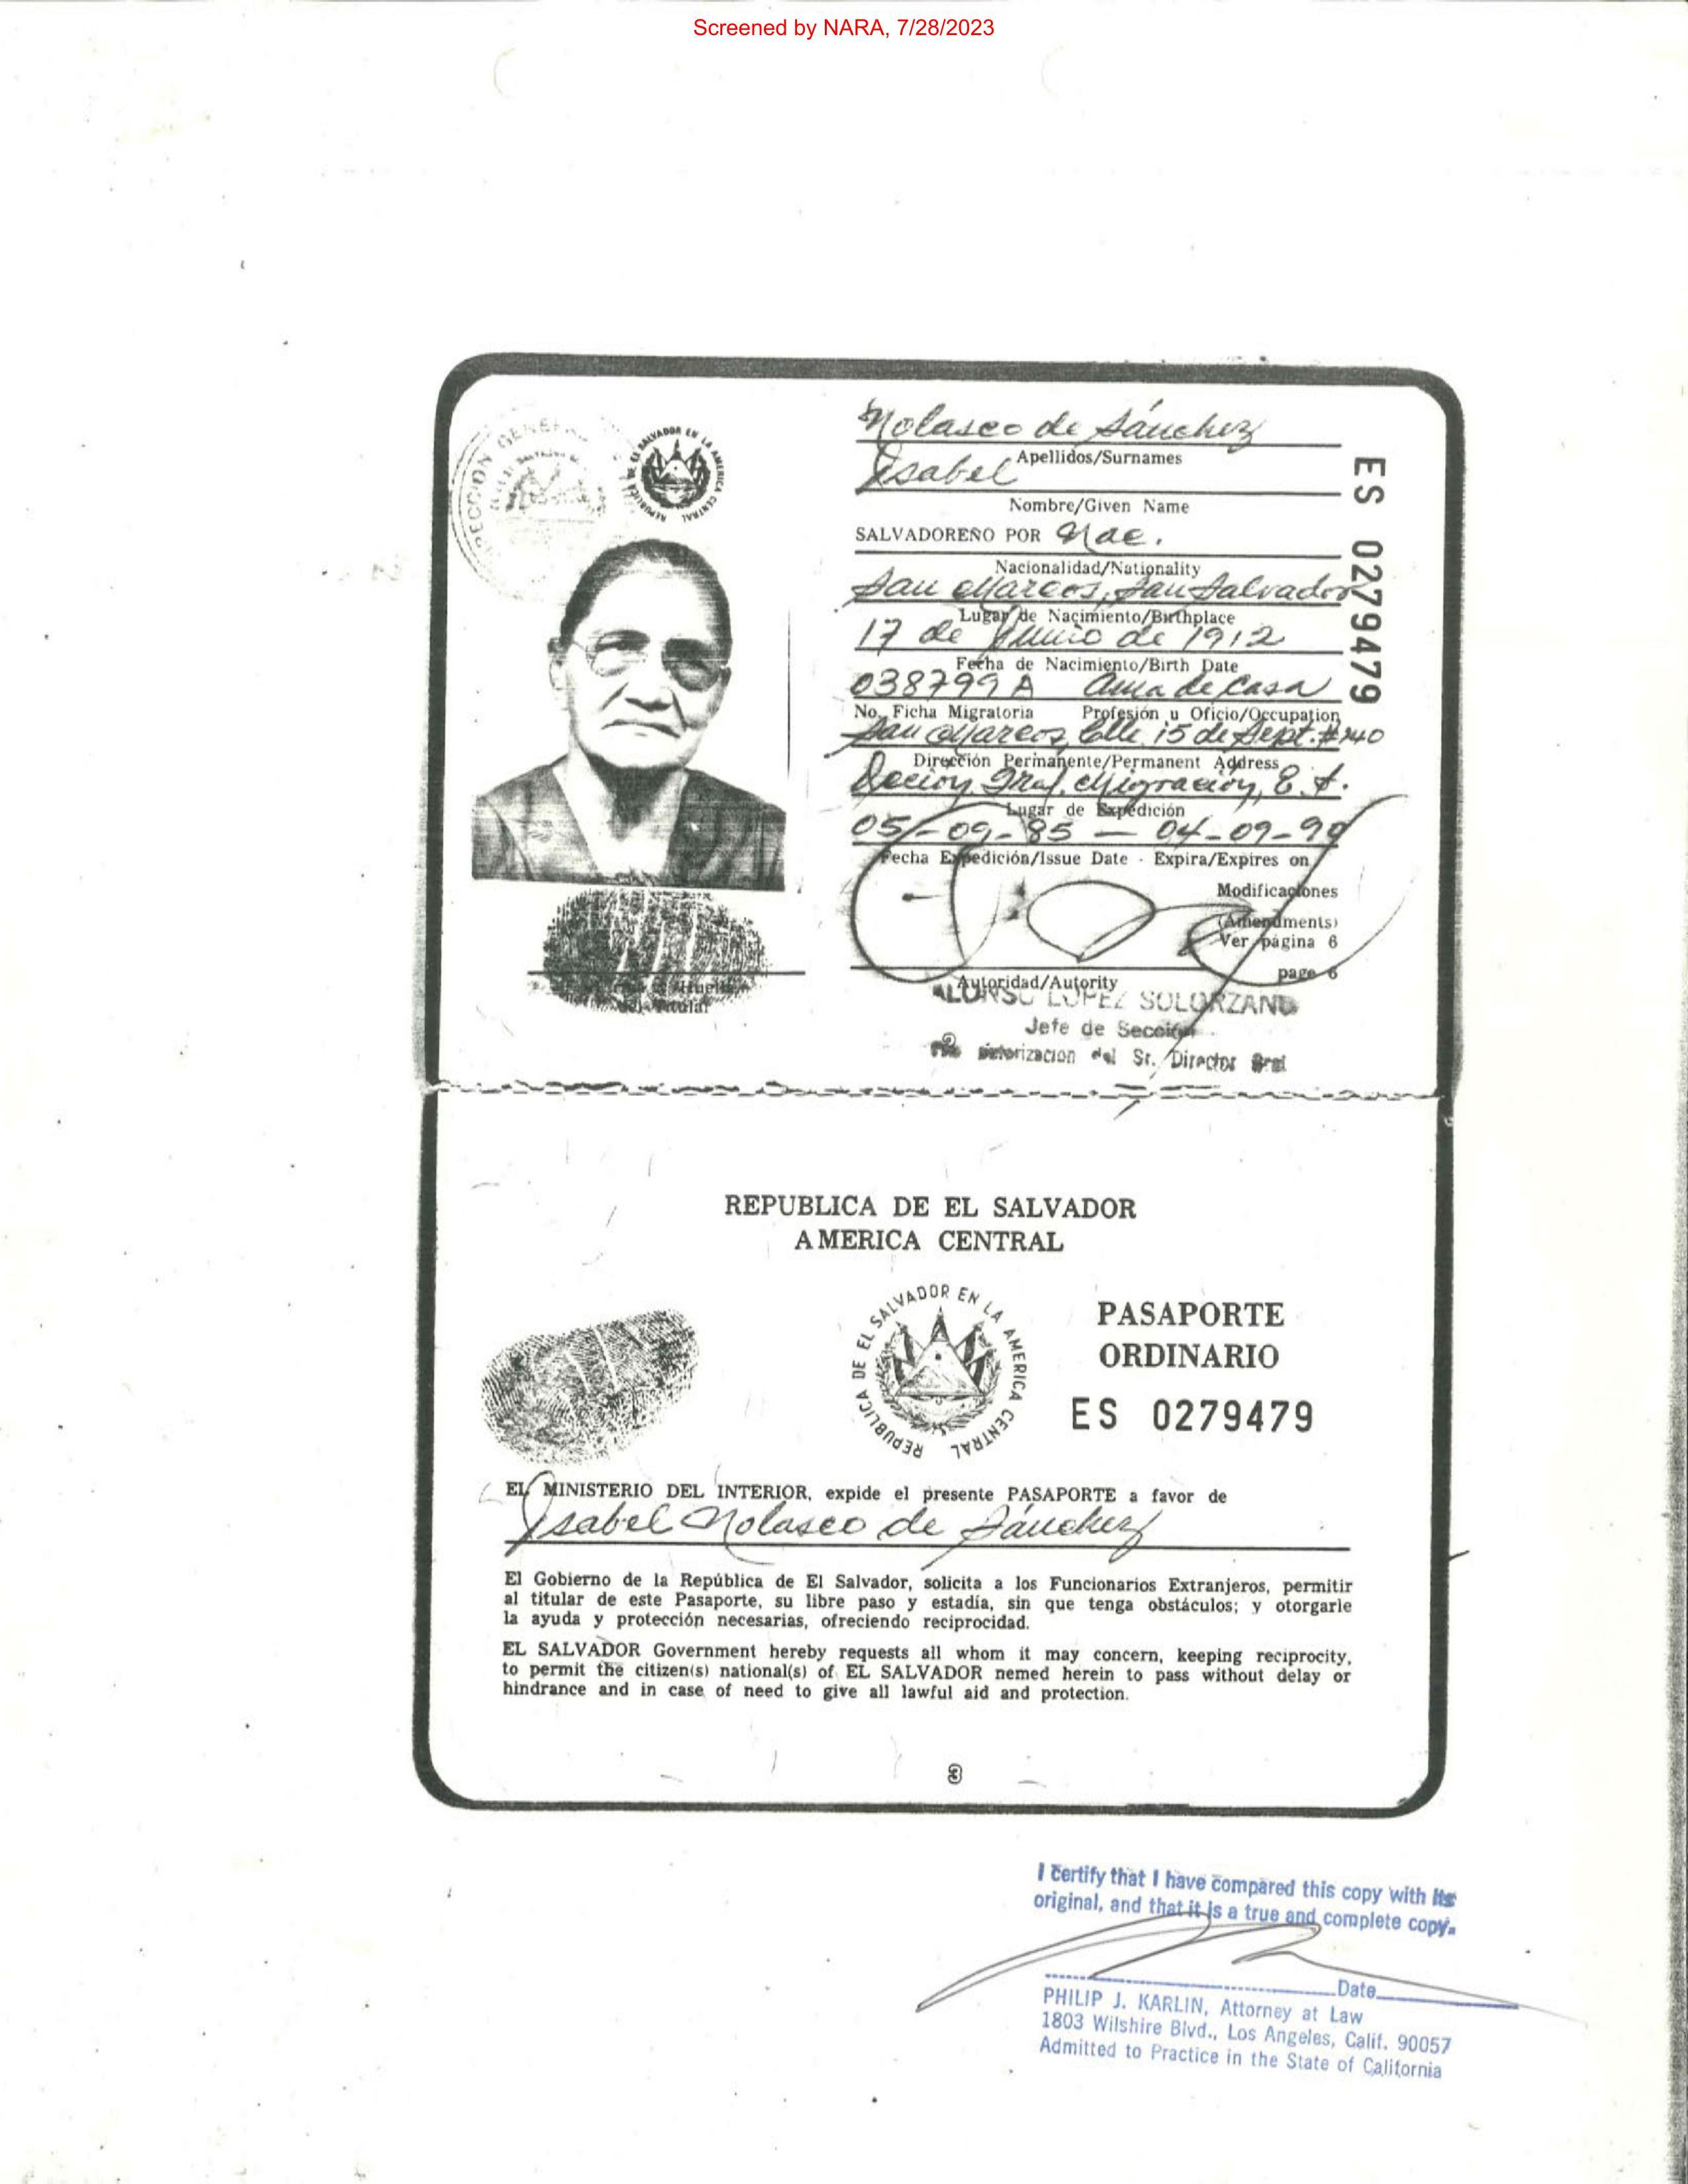 Screened by NARA, 7/28/2023
DIRECCION GENERAL
REPUBLICA DE EL SALVADOR EN LA AMERICA CENTRAL
Nolasco de Sánchez
Apellidos/Surnames
Isabel
Nombre/Given Name
SALVADOREÑO POR Nac.
Nacionalidad/Nationality
San Marcos, San Salvador
Lugar de Nacimiento/Birthplace
17 de Junio de 1912
Fecha de Nacimiento/Birth Date
038799 A ama de casa
No. Ficha Migratoria Profesión u Oficio/Occupation
San Marcos, Clle. 15 de Sept. #240
Dirección Permanente/Permanent Address
Gral. Migración,
Lugar de Expedición
05-09-85 — 04-09-90
Fecha Expedición/Issue Date - Expira/Expires on
Modificaciones
(Amendments)
Ver página 6
page 6
Autoridad/Autority
ALONSO LOPEZ SOLORZANO
Jefe de Sección
autorizacion del Sr. Director Gral
Huella
del Titular
ES 0279479
REPUBLICA DE EL SALVADOR
AMERICA CENTRAL
REPUBLICA DE EL SALVADOR EN LA AMERICA CENTRAL
PASAPORTE
ORDINARIO
ES 0279479
EL MINISTERIO DEL INTERIOR, expide el presente PASAPORTE a favor de
Isabel Nolasco de Sánchez
El Gobierno de la República de El Salvador, solicita a los Funcionarios Extranjeros, permitir
al titular de este Pasaporte, su libre paso y estadía, sin que tenga obstáculos; y otorgarle
la ayuda y protección necesarias, ofreciendo reciprocidad.
EL SALVADOR Government hereby requests all whom it may concern, keeping reciprocity,
to permit the citizen(s) national(s) of EL SALVADOR nemed herein to pass without delay or
hindrance and in case of need to give all lawful aid and protection.
3
I certify that I have compared this copy with its
original, and that it is a true and complete copy.
Date
PHILIP J. KARLIN, Attorney at Law
1803 Wilshire Blvd., Los Angeles, Calif. 90057
Admitted to Practice in the State of California